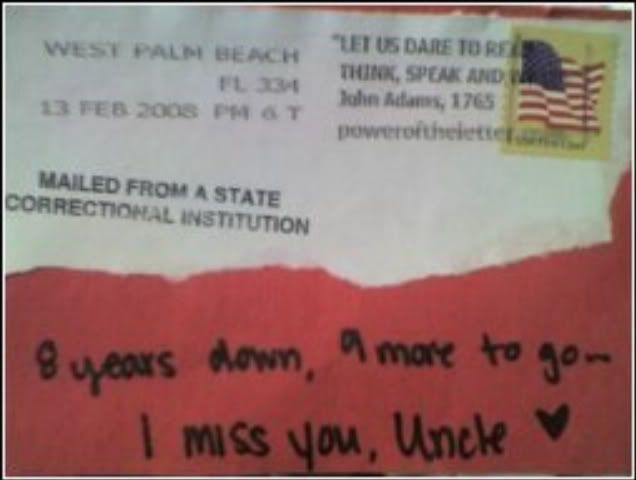 WEST PALM BEACH
FL 334
13 FEB 2008 PM 6 T
"LET US DARE TO
THINK, SPEAK AND
John Adams, 1765
poweroftheletter
MAILED FROM A STATE
CORRECTIONAL INSTITUTION
8 years down, 9 more to go~
I miss you, Uncle ♥